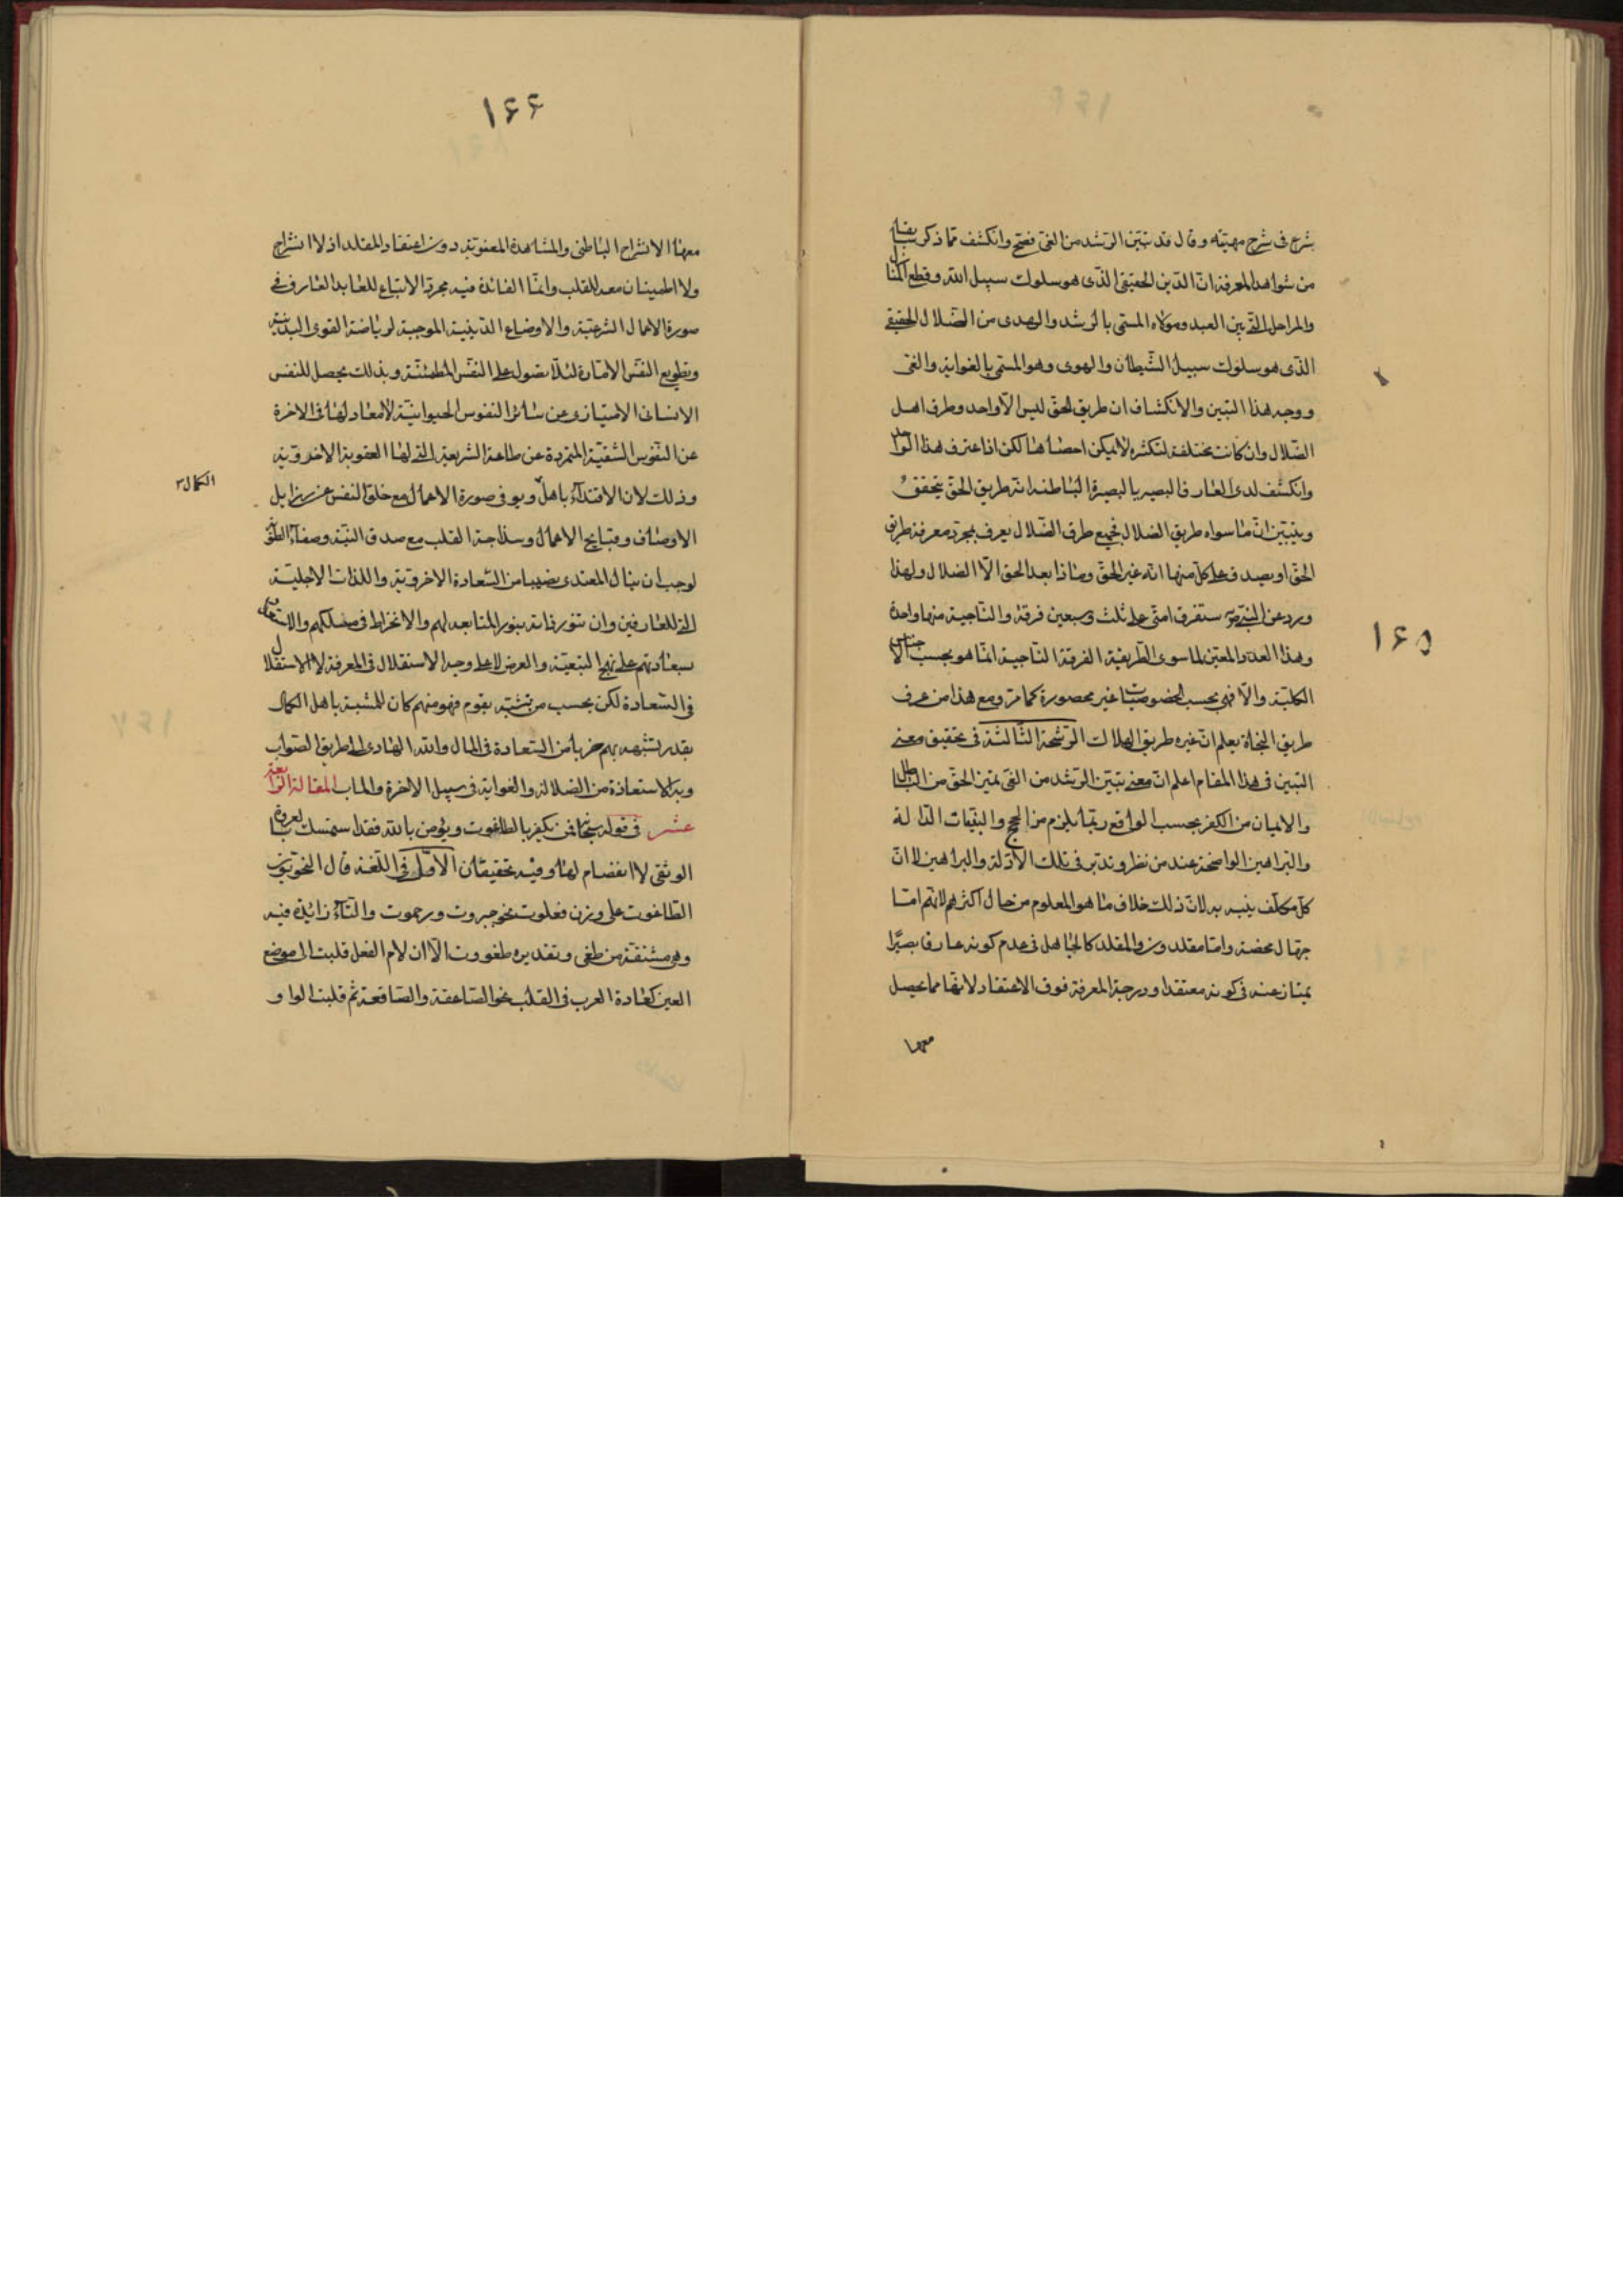 شرع فى شرح مهيته وقال قد تبين الرشد من الغى فصح وانكشف مما ذكر
من شواهد المعرفة ان الدين الحقيقى الذى هو سلوك سبيل الله وقطع المنازل
والمراحل التى بين العبد ومولاه المسمى بالرشد والهدى من الضلال الحقيقى
الذى هو سلوك سبيل الشيطان والهوى وهو المسمى بالغواية والغى
ووجه هذا التبين والانكشاف ان طريق الحق ليس الا واحد وطرق اهل
الضلال وان كانت مختلفة لتكثره لا يمكن احصاءها لكن اذا عرف هذا الواحد
وانكشف لدى العارف البصير بالبصيرة الباطنه انه طريق الحق يتحقق
ويتبين ان ما سواه طريق الضلال فجميع طرق الضلال يعرف بمجرد معرفة طريق
الحق او يصدق على كل منها انه غير الحق وماذا بعد الحق الا الضلال ولهذا
ورد عن النبى ص ستفرق امتى على ثلث وسبعين فرقة والناجية منها واحدة
١٦٥
وهذا العدد المعين لما سوى الطريقة الفرقة الناجية انما هو بحسب الاجناس
الكلية والا فهى بحسب الخصوصيات غير محصورة كما مر ومع هذا من عرف
طريق النجاة يعلم ان غيره طريق الهلاك الرشحة الثالثة فى تحقيق معنى
التبين فى هذا المقام اعلم ان معنى تبين الرشد من الغى تميز الحق من الباطل
والايمان من الكفر بحسب الواقع ربما يلزم من الحجج والبينات الدالة
والبراهين الواضحة عند من نظر وتدبر فى تلك الادلة والبراهين لا ان
كل مكلف ينبه به لان ذلك خلاف ما هو المعلوم من حال اكثرهم لانهم اما
جهال محضة واما مقلدون والمقلد كالجاهل فى عدم كونه عارفا بصيرا
يمتاز عنه فى كونه معتقدا ودرجة المعرفة فوق الاعتقاد لانها مما يحصل
معها
١٦٦
معها الانشراح الباطنى والمشاهدة المعنوية دون اعتقاد المقلد اذ لا انشراح
ولا اطمينان معه للقلب وانما الفائدة فيه مجرد الاتباع للعابد العارف فى
صورة الاعمال الشرعية والاوضاع الدينية الموجبة لرياضة القوى البدنية
وتطويع النفس الامارة لئلا تصول على النفس المطمئنة وبذلك يحصل للنفس
الانسانى الامتياز عن سائر النفوس الحيوانية لا معاد لها فى الاخرة
عن النفوس الشقية المتمردة عن طاعة الشريعة التى لها العقوبة الاخروية
وذلك لان الاقتداء باهل ولو فى صورة الاعمال مع خلو النفس عن رزايل
الكمال
الاوصاف وقبايح الاعمال وسلاجة القلب مع صدق النية وصفاء
لوجب ان ينال المقتدى نصيبا من السعادة الاخروية واللذات الاجلية
التى للعارفين وان تنور ذاته بنور المتابعة لهم والانخراط فى مسلكهم
بسعادتهم على نهج التبعية والعرض لا على وجه الاستقلال فى المعرفة لا الاستقلال
فى السعادة لكن بحسب من تشبه بقوم فهو منهم كان للمشبه باهل الكمال
بقدر تشبهه بهم ضربا من السعادة فى المال والله الهادى الى طريق الصواب
وبه الاستعاذة من الضلالة والغواية فى سبيل الاخرة والماب المقالة الرابعة
عشر فى قوله سبحانه فمن يكفر بالطاغوت ويؤمن بالله فقد استمسك بالعروة
الوثقى لا انفصام لها وفيه تحقيقان الاول فى اللغة قال النحويون
الطاغوت على وزن فعلوت نحو جبروت ورحموت والتاء زائدة فيه
وهى مشتقة من طغى وتقديره طغووت الا ان لام الفعل قلبت الى موضع
العين كعادة العرب فى القلب نحو الصاعقة والصاقعة ثم قلبت الواو